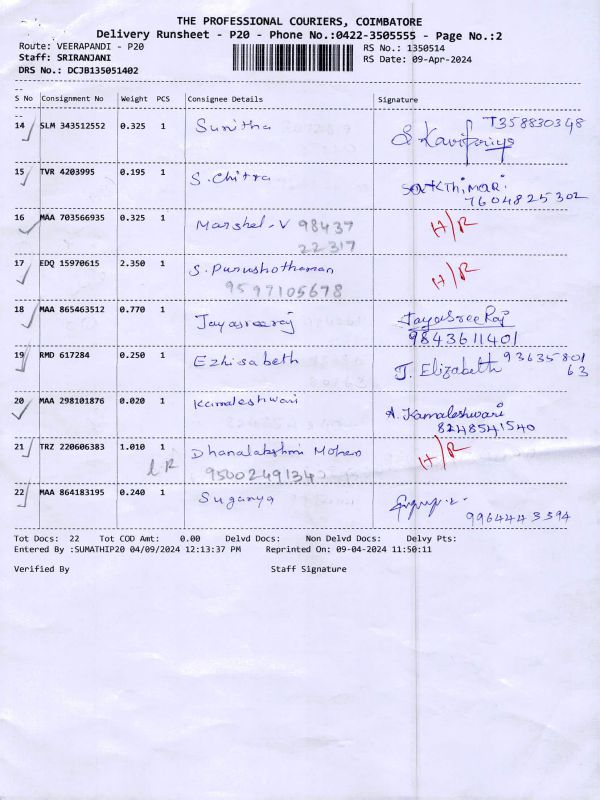 THE PROFESSIONAL COURIERS, COIMBATORE
Delivery Runsheet - P20 - Phone No.:0422-3505555 - Page No.:2
Route: VEERAPANDI - P20 RS No.: 1350514
Staff: SRIRANJANI RS Date: 09-Apr-2024
DRS No.: DCJB135051402
S No Consignment No Weight PCS Consignee Details Signature
14 SLM 343512552 0.325 1 Sunitha T358830348
S Kavipriya
15 TVR 4203995 0.195 1 S. Chitra
7604825302
16 MAA 703566935 0.325 1 Marshel-V 98437 H/R
22317
17 EDQ 15970615 2.350 1 S. Purushothaman H/R
9597105678
18 MAA 865463512 0.770 1 Jayasreeraj JayaSree Raj
9843611401
19 RMD 617284 0.250 1 Ezhisabeth J. Elizabeth 93635801
63
20 MAA 298101876 0.020 1 Kamaleshwari A. Kamaleshwari
8248541540
21 TRZ 220606383 1.010 1 Dhanalakshmi Mohan H/R
9500249134
22 MAA 864183195 0.240 1 Suganya
9964443394
Tot Docs: 22 Tot COD Amt: 0.00 Delvd Docs: Non Delvd Docs: Delvy Pts:
Entered By :SUMATHIP20 04/09/2024 12:13:37 PM Reprinted On: 09-04-2024 11:50:11
Verified By Staff Signature